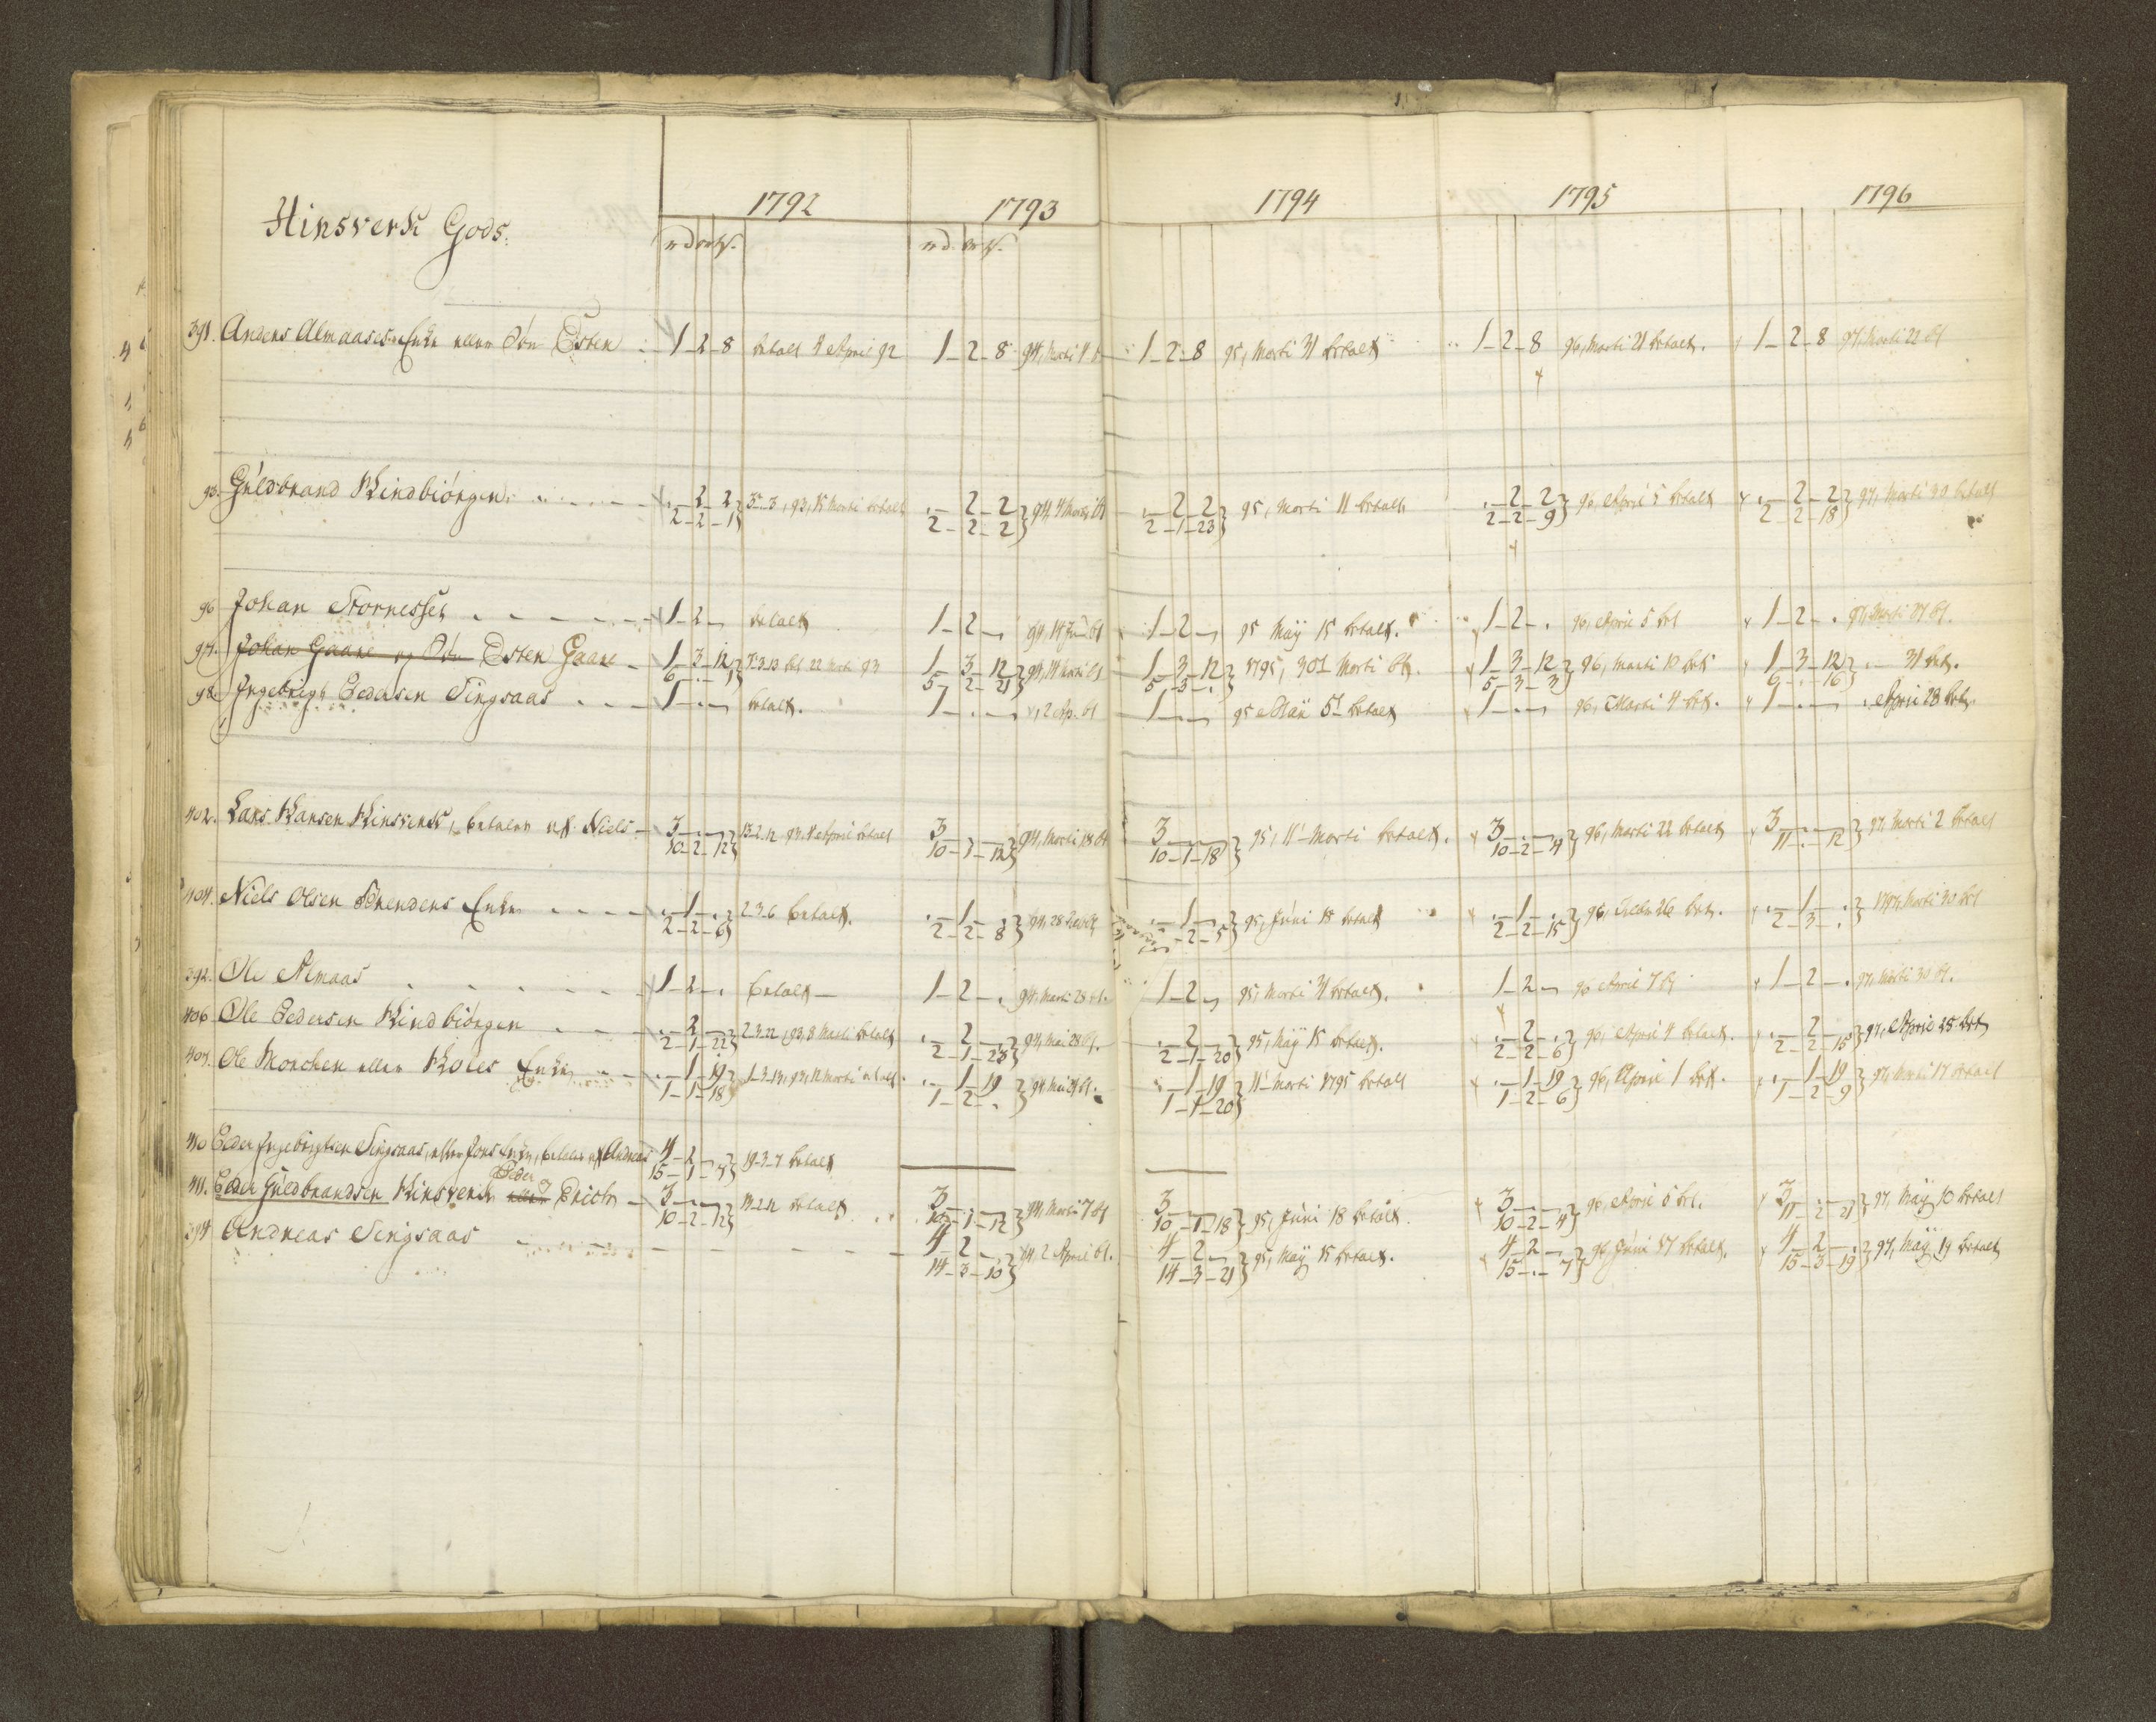 1792 1793 1794 1795 1796
Hinsverk Gods.
rd ort s. rd. ort s.
391. Anders Almaases Enke eller Søn Esten 1-2-8 betalt 4 April 92 1-2-8 94, Marti 4 1-2-8 95, Marti 31 betalt 1-2-8 96, Marti 21 betalt. 1-2-8 97, Marti 22 bt
93. Guldbrand Kindbiørgen .-2-2 3-.-3, 93, 15 Marti betalt .-2-2 94, 4 Marti bt .-2-2 95, Marti 11 betalt .-2-2 96, April 5 betalt .-2-2 97, Marti 30 betalt
2-2-1 2-2-2 2-1-23 2-2-9 2-2-18
96 Johan 1-2- betalt 1-2- 94, 14 bt 1-2- 95 Maÿ 15 betalt. 1-2-. 96, April 5 bet 1-2-. 97, Marti bt.
97. Johan Gaare og Søn Esten Gaare 1-3-12 bet 22 Marti 93 1-3-12 94, 14 Marti bt 1-3-12 1795, 30t Marti bt. 1-3-12 96, Marti 10 bet 1-3-12 31 bet.
6-.-1 5-2-21 5-3-. 5-3-3 6-.-16
98. Ingebrigt Pedersen Singsaas 1-.- betalt. 1-.- 2 Ap. bt 1-.- 95 Maÿ 5t betalt 1-.- 96, Marti 4 bet. 1-.- April 28 bet
402. Lars Hansen Hinsverk, betaler nu Niels 3-.- 13-2-12 93. 4 April betalt 3 94, Marti 18 bt 3 95, 11t Marti betalt. 3-.- 96, Marti 22 betalt 3-.- 97, Marti 2 betalt
10-2-12 10-1-12 10-1-18 10-2-4 11-.-12
404. Niels Olsen Enke .-1-. 2-3-6 betalt. .-1-. 94, 28 bt .-1- 95, Juni 18 betalt .-1-. 96, 26 bet. .-1-. 1797, Marti 30 bet
2-2-6 2-2-8 -2-5 2-2-15 2-3-.
392. Ole Almaas 1-2-. betalt 1-2-. 94, Marti 28 bt. 1-2- 95, Marti 31 betalt. 1-2- 96 April 7 bt 1-2-. 97, Marti 30 bt.
406 Ole Pedersen Kindbiørgen .-2- 2-3-22, 93, 8 Marti betalt .-2- 94, Mai 28 bt. -2- 95, Maÿ 15 betalt. .-2-. 96, April 4 betalt. .-2- 97, April 25 bet
2-1-22 2-1-23 2-1-20 2-2-6 2-2-15
407. Ole Monchen eller Enke .-1-19 1-3-13, 93, 12 Marti betalt. .-1-19 94 Mai bt. -1-19 11t Marti 1795 betalt .-1-19 96, April 1 bet. .-1-19 97, Marti 17 betalt
1-1-18 1-2-. 1-1-20 1-2-6 1-2-9
410 Peder Ingebrigtsen Singsaas, eller Jons Enke, betaler nu Andreas 4-2- 19-3-7 betalt
15-1-7
411. Peder Guldbrandsen Hinsverk Peder eller Erich 3-.- 13-2-12 betalt 3-.- 94, Marti 7 bt 3 95, Juni 18 betalt. 3-.- 96, April 5 bet. 3-.- 97, Maÿ 10 betalt
10-2-12 10-1-12 10-1-18 10-2-4 11-2-21
394 Andreas Singsaas 4-2-. 94, 2 April bt. 4-2- 95, Maÿ 15 betalt. 4-2- 96, Juni 17 betalt. 4-2-. 97, Maÿ 19 betalt
14-3-10 14-3-21 15-.-7 15-3-19